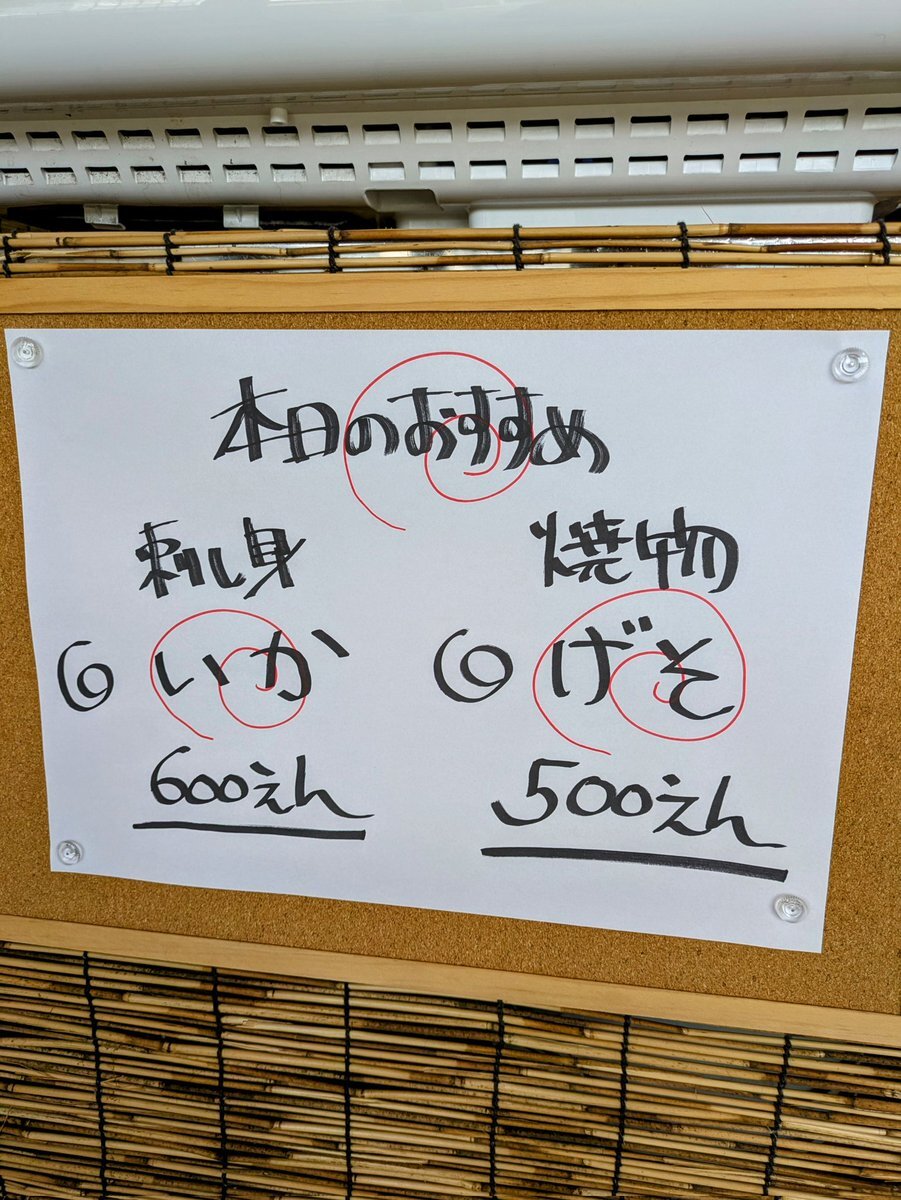 本日のおすすめ
刺し身
◎ いか
600えん
焼物
◎ げそ
500えん